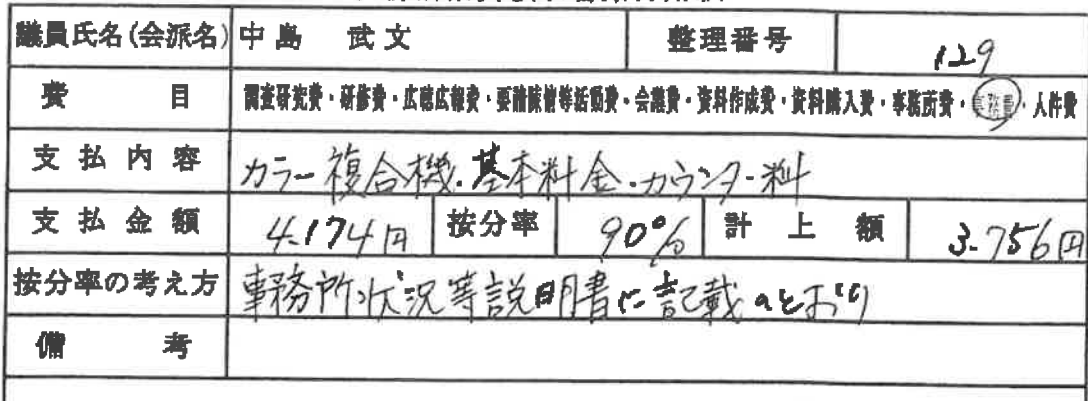 議員氏名(会派名) 中島 武文 整理番号 129
費目 調査研究費・研修費・広聴広報費・要請陳情等活動費・会議費・資料作成費・資料購入費・事務所費・事務費・人件費
支払内容 カラー複合機.基本料金.カウンター料
支払金額 4.174円 按分率 90% 計上額 3.756円
按分率の考え方 事務所状況等説明書に記載のとおり
備考